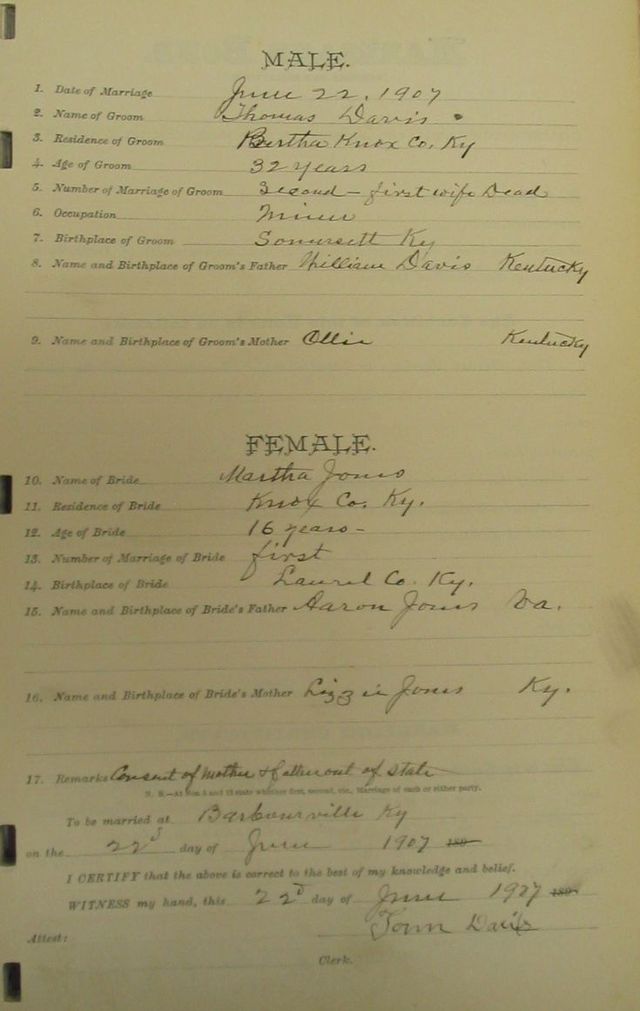 MALE.
1. Date of Marriage June 22, 1907
2. Name of Groom Thomas Davis
3. Residence of Groom Bertha Knox Co. Ky
4. Age of Groom 32 years
5. Number of Marriage of Groom Second - first wife Dead
6. Occupation Miner
7. Birthplace of Groom Somersett Ky
8. Name and Birthplace of Groom's Father William Davis Kentucky
9. Name and Birthplace of Groom's Mother Ollie Kentucky
FEMALE.
10. Name of Bride Martha Jones
11. Residence of Bride Knox Co. Ky.
12. Age of Bride 16 years -
13. Number of Marriage of Bride first
14. Birthplace of Bride Laurel Co. Ky.
15. Name and Birthplace of Bride's Father Aaron Jones Va.
16. Name and Birthplace of Bride's Mother Lizzie Jones Ky.
17. Remarks Consent of Mother & father out of state
N. B.—At Nos. 5 and 13 state whether first, second, etc., Marriage of each or either party.
To be married at Barbourville Ky
on the 22d day of June 1907 189
I CERTIFY that the above is correct to the best of my knowledge and belief.
WITNESS my hand, this 22d day of June 1907 189
Tom Davis
Attest:
Clerk.